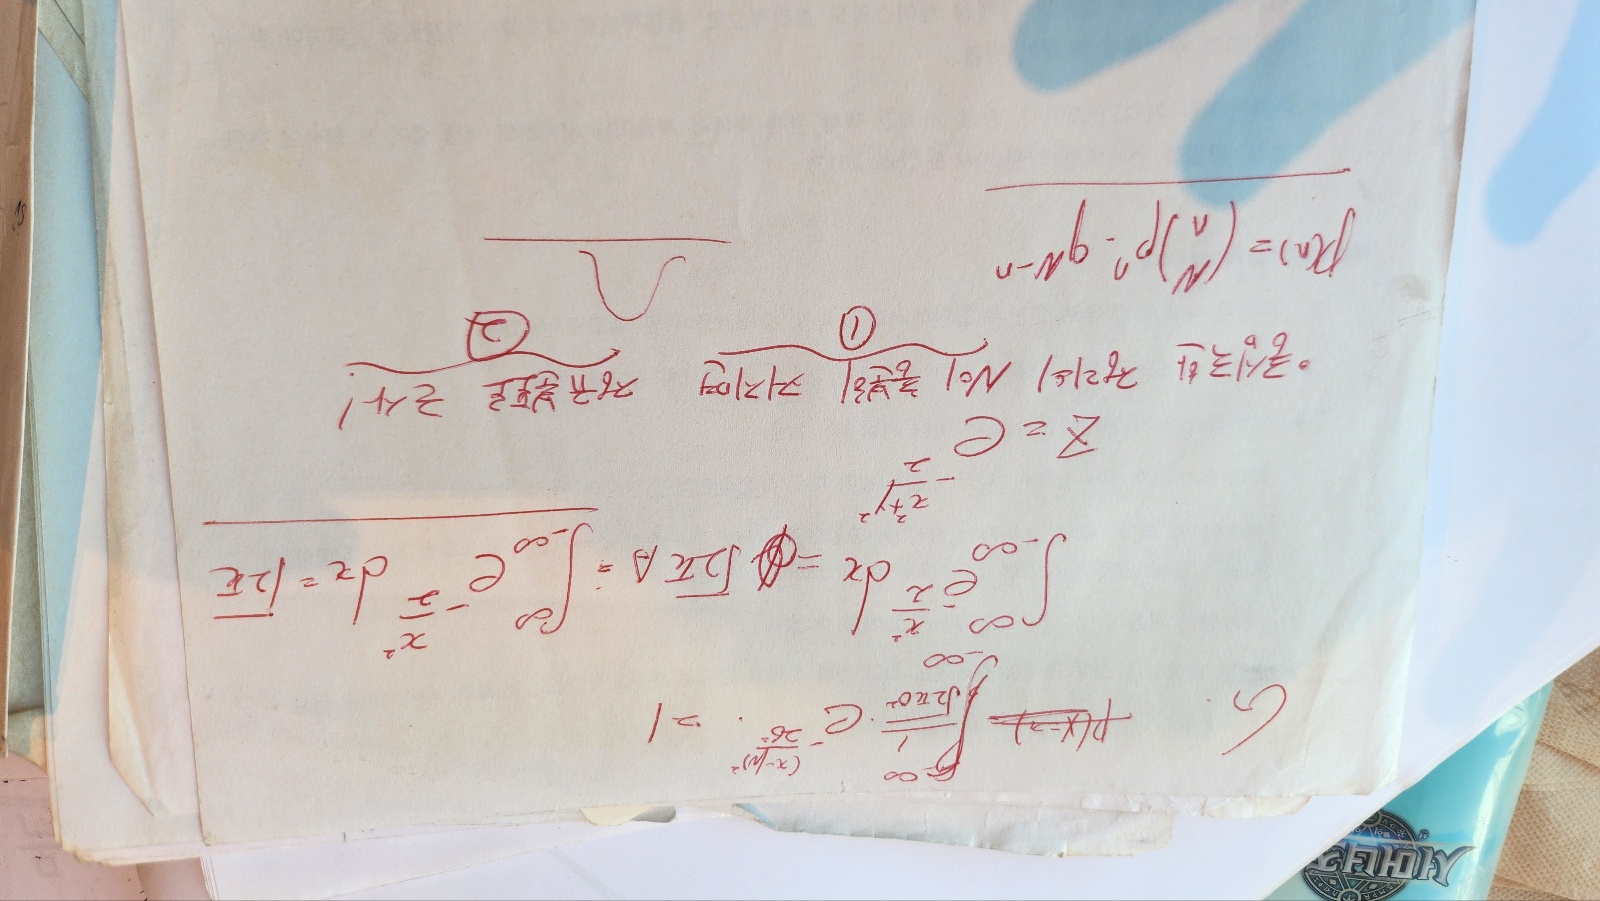 서머너즈
G. ∫_{-∞}^{∞} 1/√(2πσ²) · e^{-(x-μ)²/2σ²} · = 1
∫_{-∞}^{∞} e^{-x²/2} dx = √2π A = ∫_{-∞}^{∞} e^{-x²/2} dx = √2π
Z = e^{-(x²+y²)/2}
• 중심극한 정리의 N이 충분히 커지면 정규분포로 근사!
① ②
P(n) = (N n) p^n · q^{N-n}